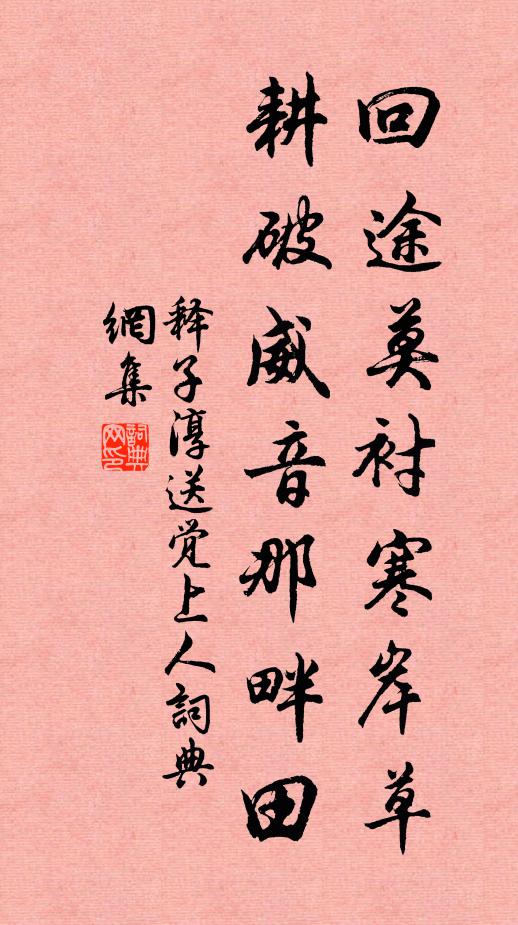 回途莫衬寒岸草
耕破威音那畔田
释子淳送觉上人詞典
網集
詞典
网印